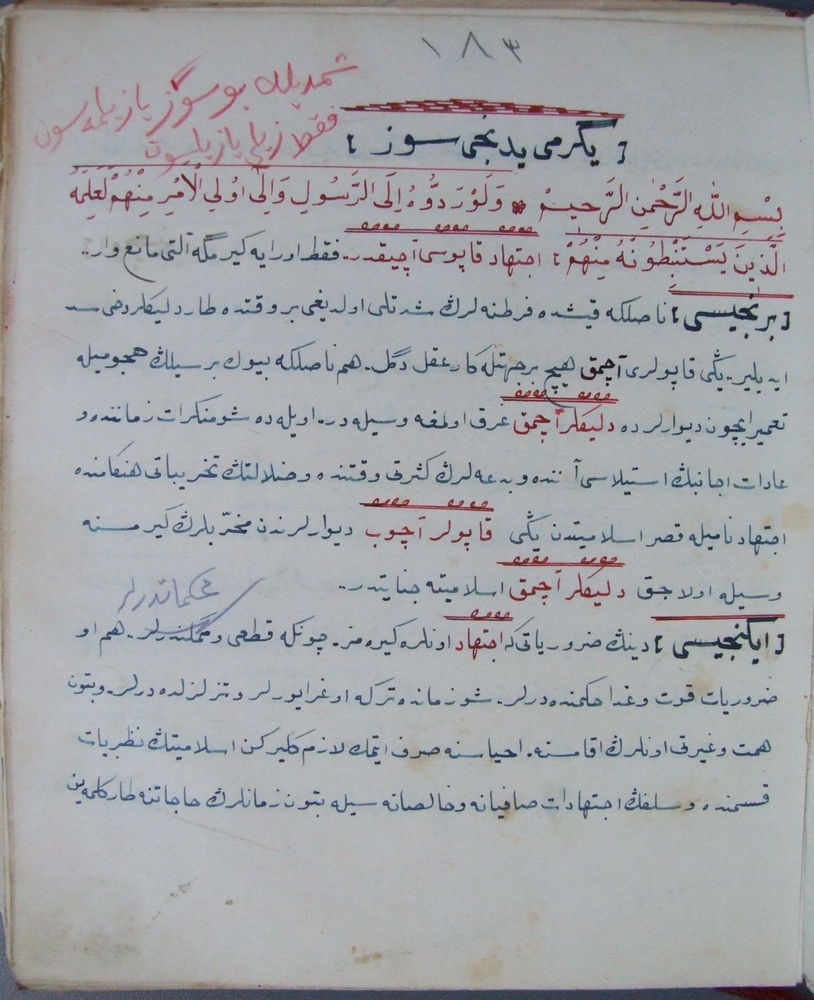 ١٨٣
شمديلك بو سوز يازيلمه سون
فقط ذيلى يازيلسون
[ يگرمى يدنجى سوز ]
بِسْمِ اللّٰهِ الرَّحْمٰنِ الرَّحِيمْ ❋ وَلَوْ رَدُّوهُ اِلَى الرَّسُولِ وَاِلٰٓى اُولِى الْاَمْرِ مِنْهُمْ لَعَلِمَهُ
الَّذِينَ يَسْتَنْبِطُونَهُ مِنْهُمْ : اجتهاد قاپوسى آچيقدر.. فقط اورايه كيرمگه آلتى مانع وار..
[ برنجيسى ] ناصلكه قيشده فرطنه لرك شدتلى اولديغى بر وقتده طار دليكلر دخى سد
ايديلير.. يڭى قاپولرى آچمق هيچ بر جهتله كار عقل دگل. هم ناصلكه بيوك بر سيلك هجوميله
تعمير ايچون ديوارلرده دليكلر آچمق غرق اولمغه وسيله در. اويله ده شو منكرات زماننده و
عادات اجانبڭ استيلاسى آننده و بدعه لرڭ كثرتى وقتنده و ضلالتڭ تخريباتى هنكامنده
اجتهاد ناميله قصر اسلاميتدن يڭى قاپولر آچوب ديوارلرندن مخرّبلرڭ كيرمسنه
وسيله اولاجق دليكلر آچمق اسلاميته جنايتدر..
محكماتدرلر
[ ايكنجيسى ] دينڭ ضرورياتى كه اجتهاد اونلره كيره مز. چونكه قطعى و معيّندرلر. هم او
ضروريات قوت و غدا حكمنده درلر. شو زمانده تركه اوغرايورلر و تزلزلده درلر. و بتون
همت و غيرتى اونلرڭ اقامسنه. احياسنه صرف ايتمك لازم كليركن اسلاميتڭ نظريات
قسمنده و سلفڭ اجتهادات صافيانه و خالصانه سيله بتون زمانلرڭ حاجاتنه طار كلمه ين